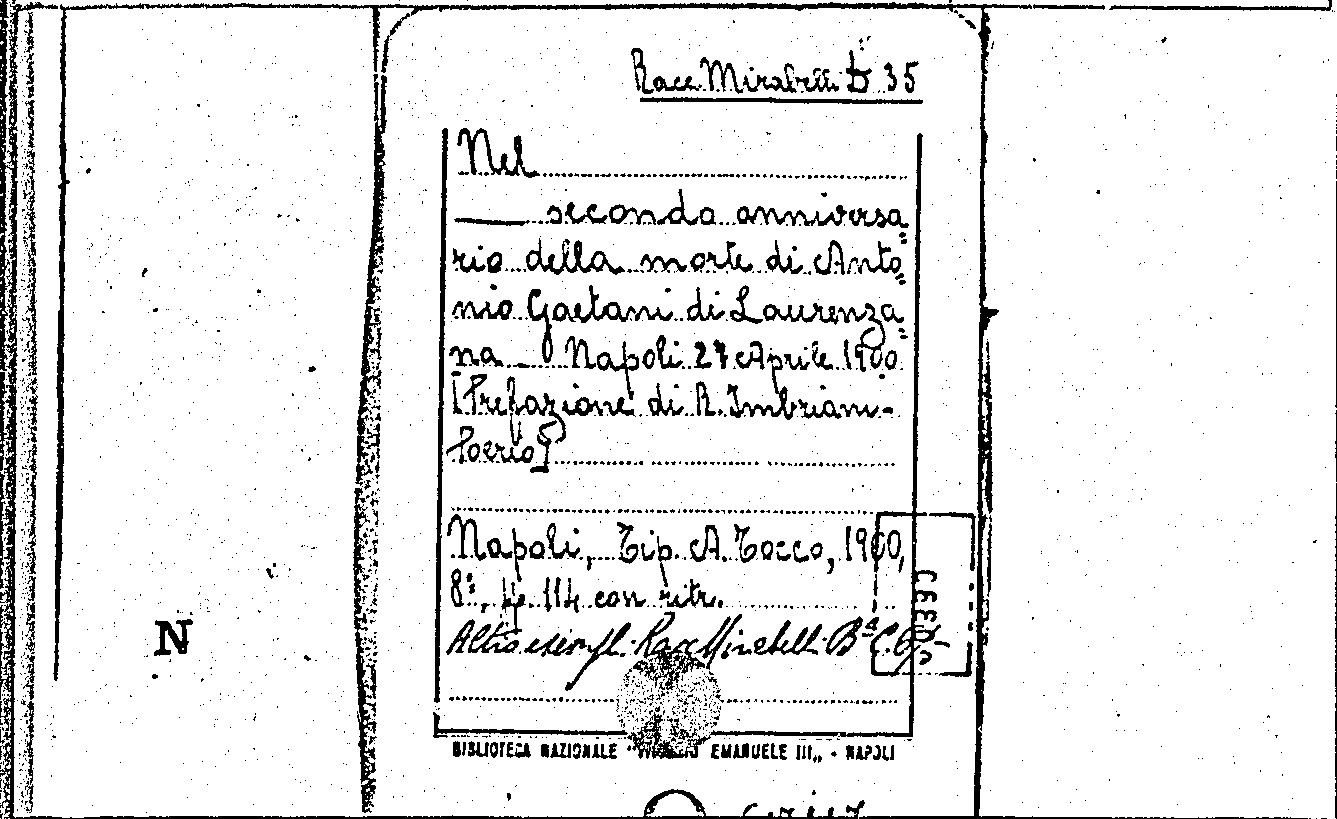 Racc. Mirabelli b 35
Nel
seconda anniversa=
rio della morte di Anto=
nio Gaetani di Laurenza=
na _ Napoli 27 Aprile 1900
[Prefazione di R. Imbriani-
Poerio]
Napoli, Tip. A. Tocco, 1900,
8º, p. 114 con ritr.
Altro esempl. Racc Mirabelli Bª C.
N
BIBLIOTECA NAZIONALE " EMANUELE III,, - NAPOLI